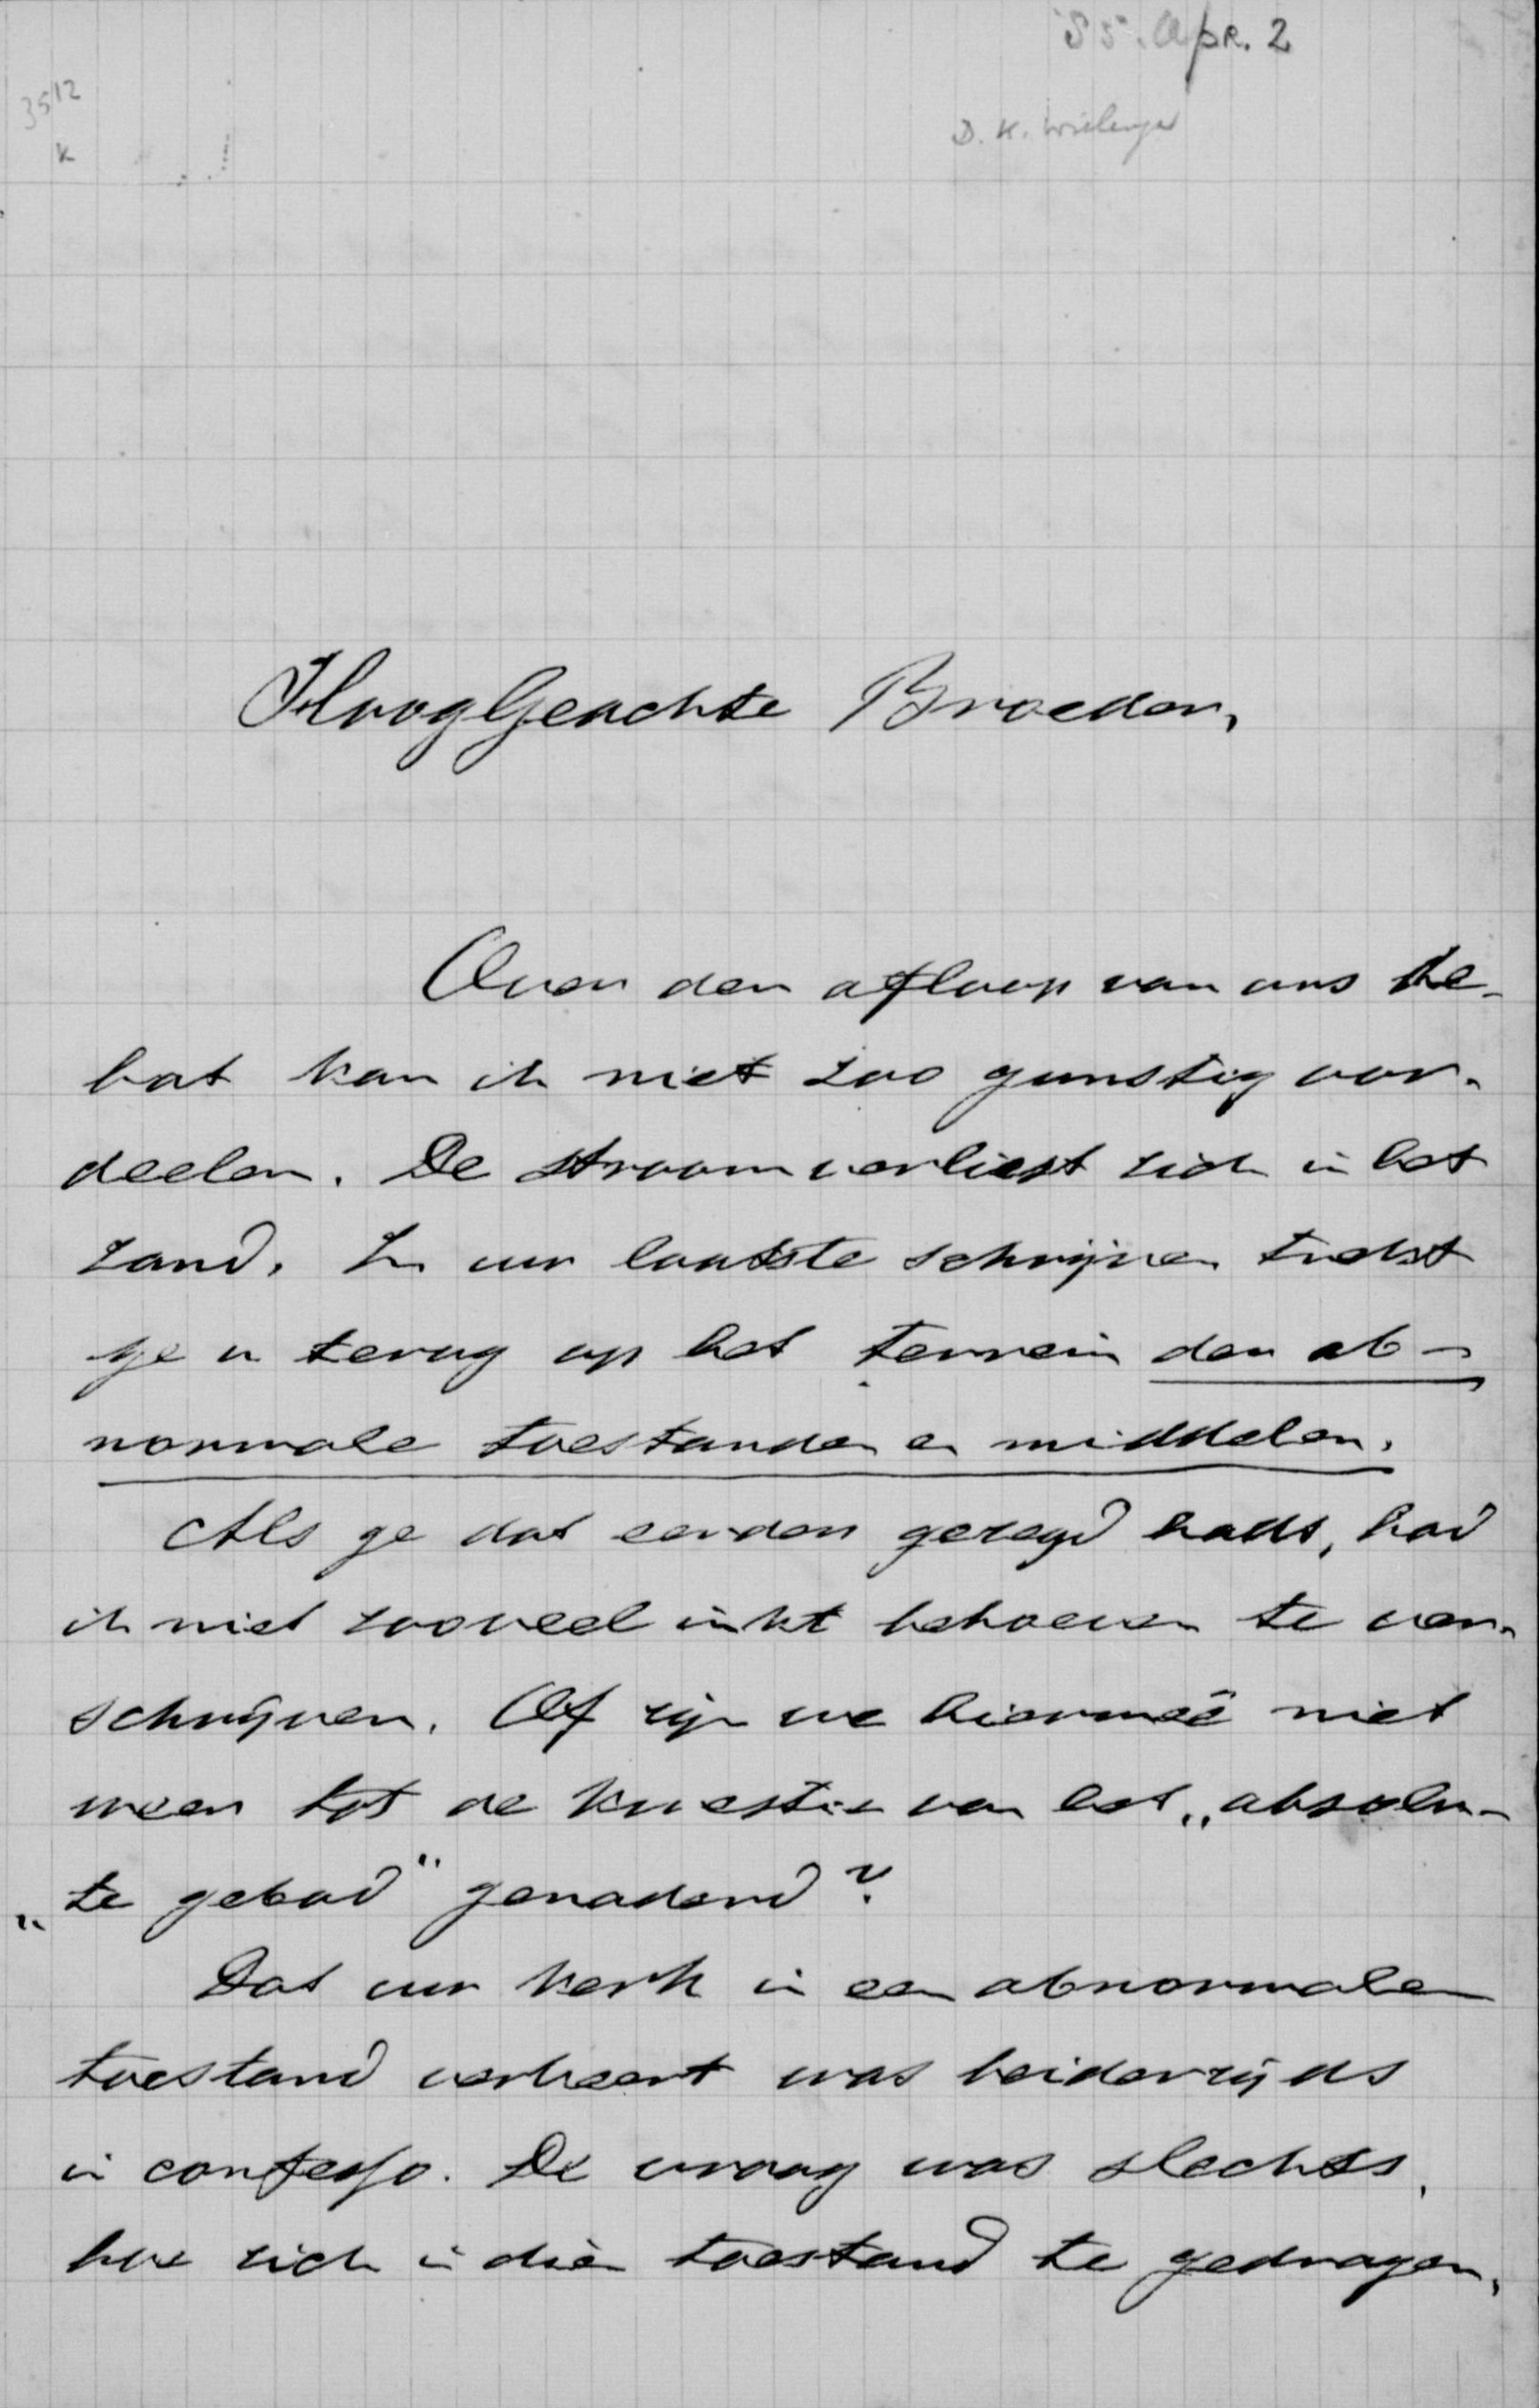 '85. Apr. 2
3512
k
D. K. Wielenga
HoogGeachte Broeder,
Over den afloop van ons de-
bat kan ik niet zoo gunstig oor-
deelen. De stroom verliest zich in het
zand. In uw laatste schrijven trekt
ge u terug op het terrein der ab-
normale toestanden en middelen.
Als ge dat eerder gezegd hadt, had
ik niet zooveel inkt behoeven te ver-
schrijven. Of zijn we hiermeê niet
weer tot de kwestie van het „absolu-
„te gebod" genaderd?
Dat uw kerk in een abnormalen
toestand verkeert was beiderzijds
in confesso. De vraag was slechts,
hoe zich in dien toestand te gedragen,